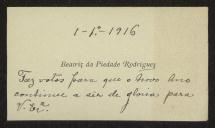 1-1º-1916
Beatriz da Piedade Rodrigues
Faz votos para que o Novo Ano
continue a ser de gloria para
V. Exª.